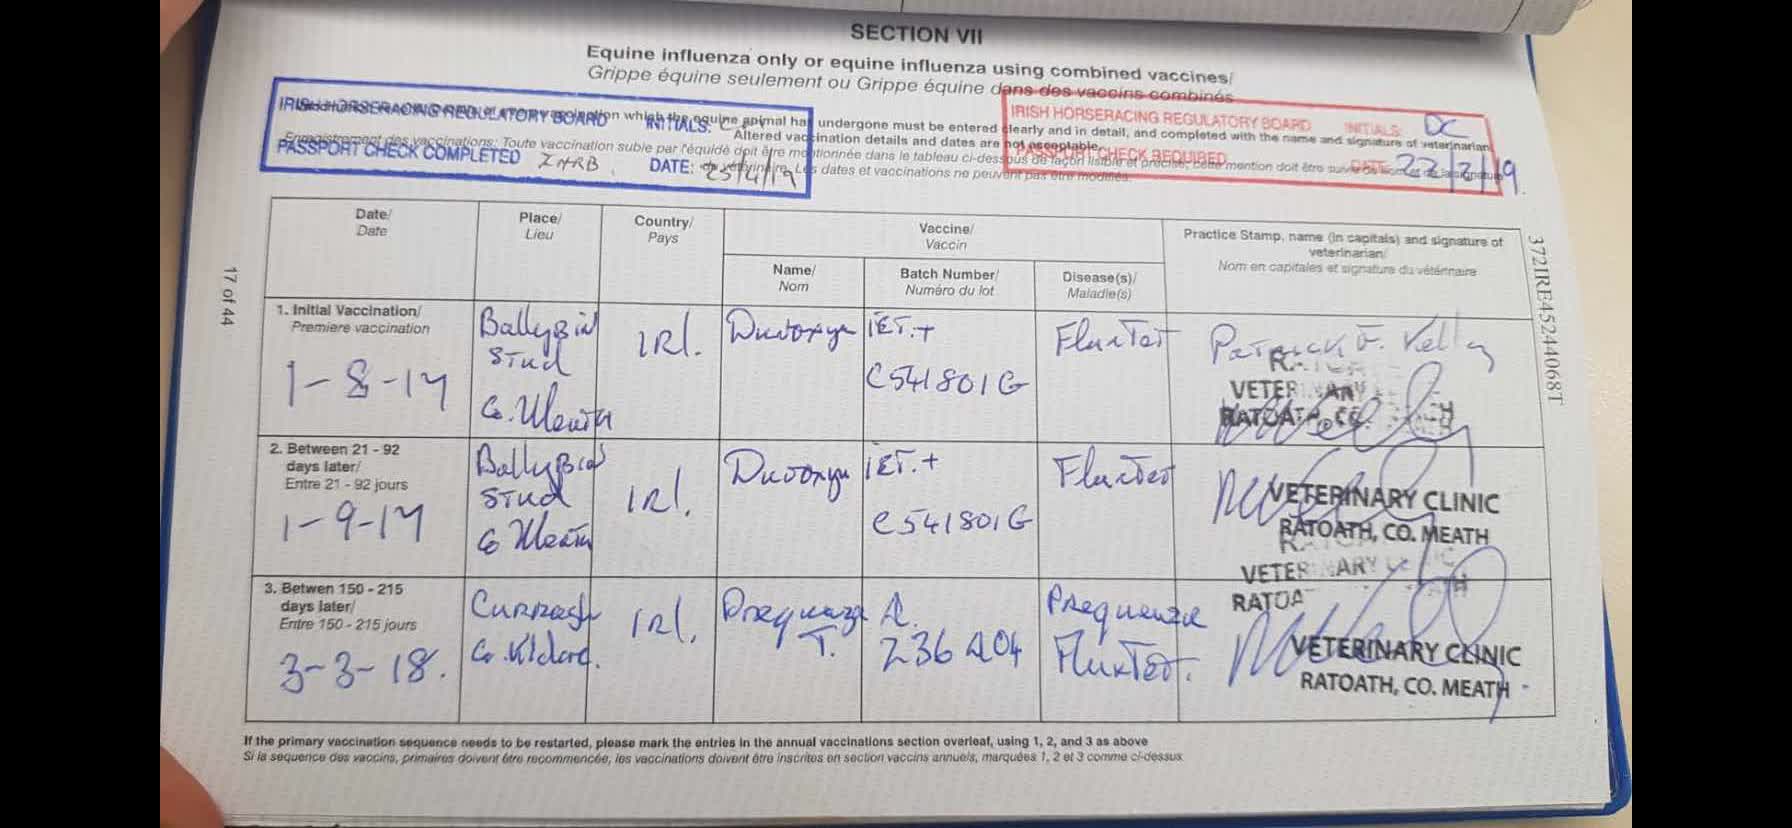 SECTION VII
Equine influenza only or equine influenza using combined vaccines/
Grippe équine seulement ou Grippe équine dans des vaccins combinés
IRISH HORSERACING REGULATORY BOARD INITIALS:
PASSPORT CHECK COMPLETED IHRB DATE: 25/4/19
IRISH HORSERACING REGULATORY BOARD INITIALS: DC
PASSPORT CHECK REQUIRED DATE: 22/2/19
which the equine animal has undergone must be entered clearly and in detail, and completed with the name and signature of veterinarian.
Altered vaccination details and dates are not acceptable.
Enregistrement des vaccinations: Toute vaccination subie par l'équidé doit être mentionnée dans le tableau ci-dessous de façon lisible et précise, cette mention doit être suivie
Les dates et vaccinations ne peuvent pas être modifiés.
17 of 44
372IRE45244068T
Date/
Date
Place/
Lieu
Country/
Pays
Vaccine/
Vaccin
Name/
Nom
Batch Number/
Numéro du lot
Disease(s)/
Maladie(s)
Practice Stamp, name (in capitals) and signature of
veterinarian/
Nom en capitales et signature du vétérinaire
1. Initial Vaccination/
Premiere vaccination
1-8-17
Stud
Co. Meath
IRl.
IET.+
C541801G
Flu+Tet
Patrick F. Kelly
VETERINARY
RATOATH, CO.
2. Between 21 - 92
days later/
Entre 21 - 92 jours
1-9-17
Stud
Co Meath
IRl.
IET.+
C541801G
Flu+Tet
VETERINARY CLINIC
RATOATH, CO. MEATH
VETERINARY
3. Betwen 150 - 215
days later/
Entre 150 - 215 jours
3-3-18.
Curragh
Co. Kildare.
IRl.
Prequenza
T.
A.
236A04
Prequenza
Flu+Tet.
RATOA
VETERINARY CLINIC
RATOATH, CO. MEATH
If the primary vaccination sequence needs to be restarted, please mark the entries in the annual vaccinations section overleaf, using 1, 2, and 3 as above
Si la sequence des vaccins, primaires doivent être recommencée, les vaccinations doivent être inscrites en section vaccins annuels, marquées 1, 2 et 3 comme ci-dessus